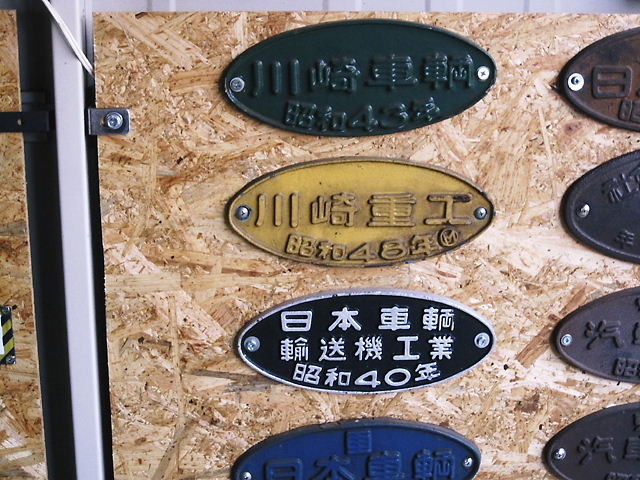 川崎車輌
昭和43年
川崎重工
昭和46年M
日本車輌
輸送機工業
昭和40年
日本車輌
日
昭
社
年
汽
昭
汽車